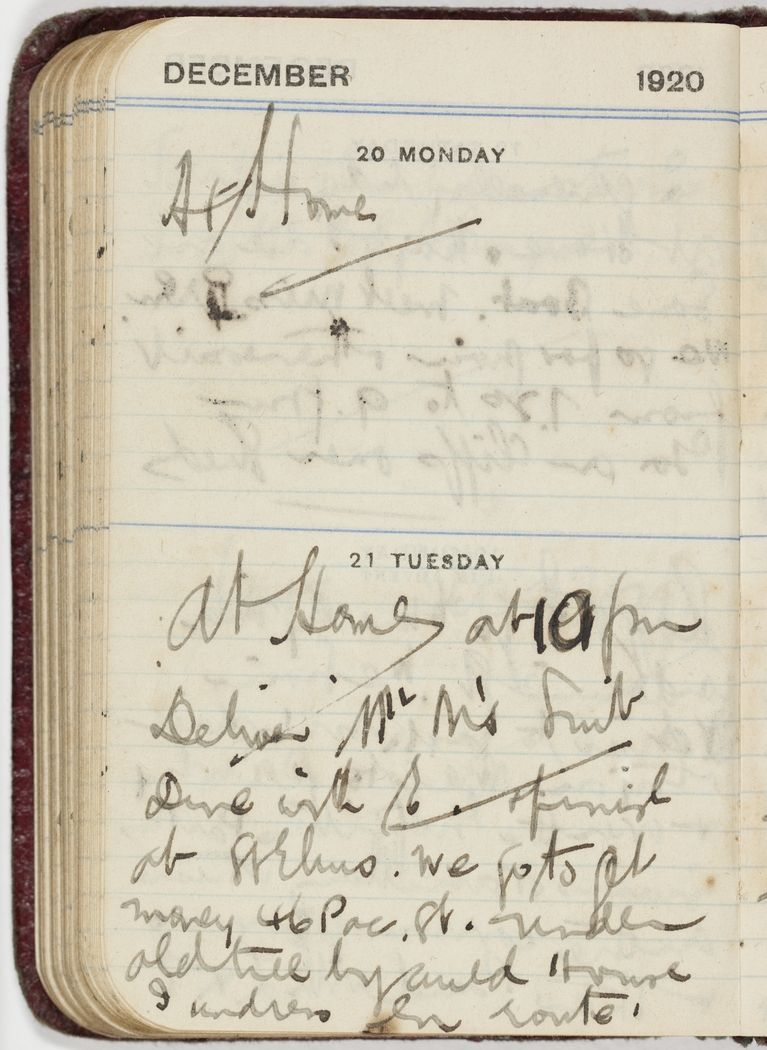 DECEMBER 1920
20 MONDAY
At Home
21 TUESDAY
At Home at 10 pm
Deliver Mr M's Suit
Dine with E. finish
at St Elmo. We go to get
money 46 Pac. St. under
old tree by auld House
I undress En route.